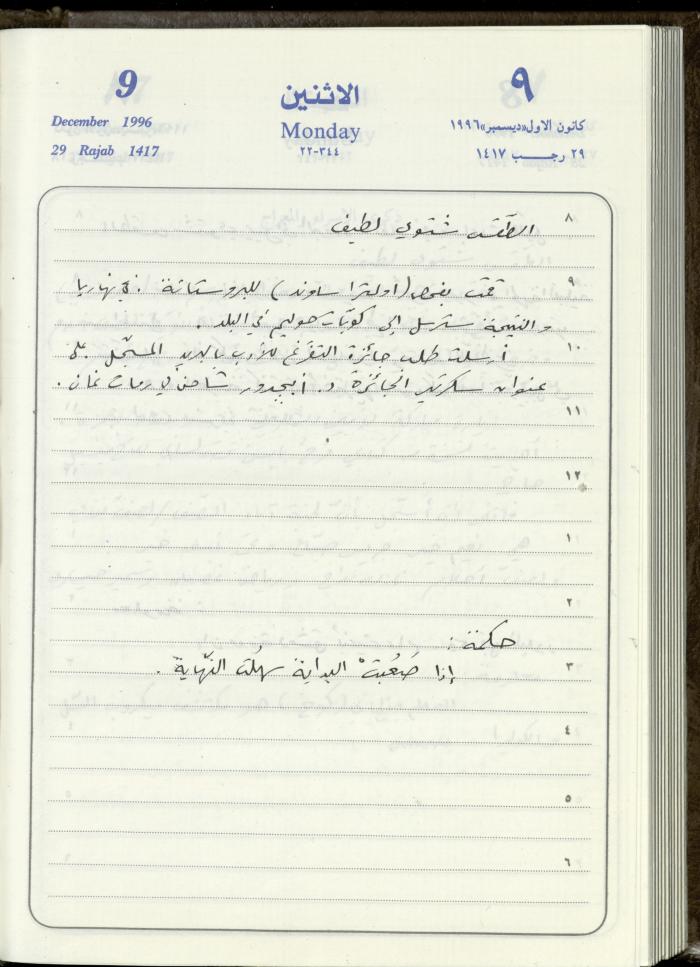 9
December 1996
29 Rajab 1417
الاثنين
Monday
٣٤٤-٢٢
٩
كانون الاول«ديسمبر»١٩٩٦
٢٩ رجـــب ١٤١٧
٨
الطقس شتوي لطيف
٩
قمت بفحص (اولترا ساوند) للبروستاتة . في نهاريا
والنتيجة سترسل إلى كوبات حوليم في البلد .
١٠
أرسلت طلب جائزة التفرّغ للأدب بالبريد المسجّل على
عنوان سكرتير الجائزة د. أبيجدور شاحن في رمات غان .
١١
١٢
١
٢
حكمة :
٣
إذا صَعُبتْ البداية سهلُت النهّاية .
٤
٥
٦